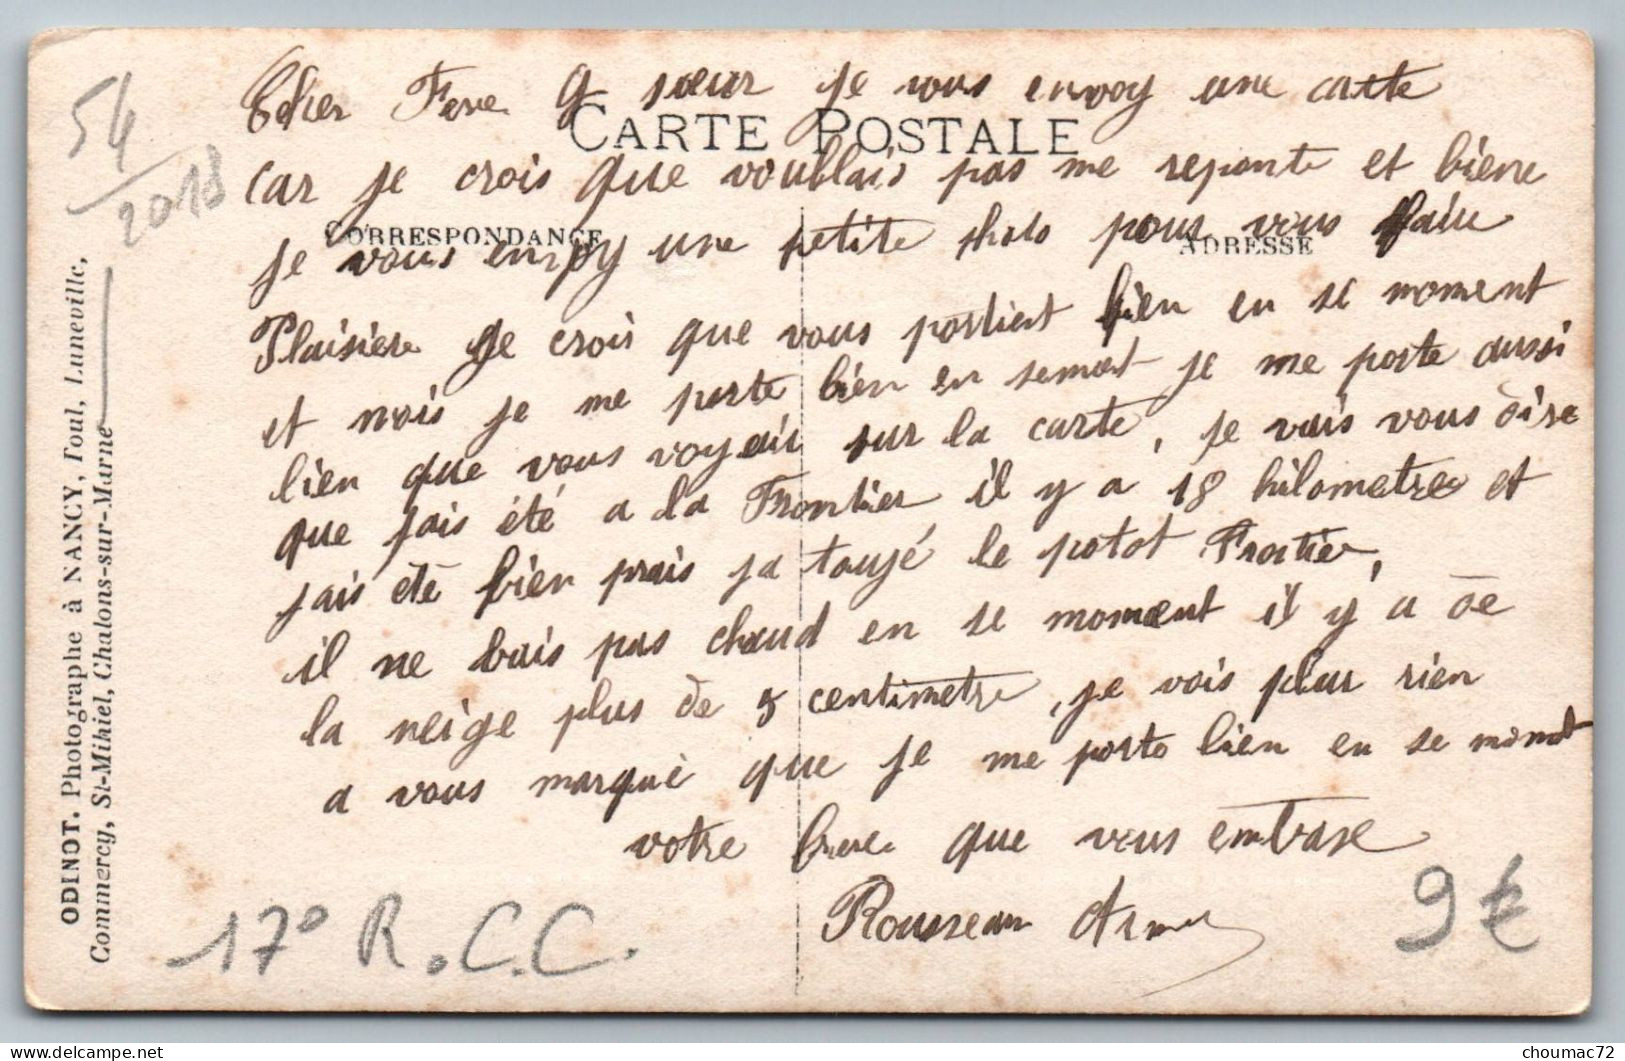 54
2018
CARTE POSTALE
CORRESPONDANCE
ADRESSE
Cher Frere q soeur je vous envoy une carte
car je crois que voublais pas me reponte et biene
je vous envoy une petite photo pour vous faire
Plaisiere je crois que vous portient bien en se moment
et mois je me porte bien en semot je me porte aussi
bien que vous voyair sur la carte, je vais vous dire
que jais été a la Frontier il y a 18 kilometre et
jais été bien prais ja toujé le potot Frontier,
il ne bais pas chaud en se moment il y a de
la neige plus de 5 centimetre, je vois plur rien
a vous marqué que je me porte bien en se momot
votre frere que vous embrase
Rousseau
ODINOT. Photographe à NANCY, Toul, Luneville,
Commercy, St-Mihiel, Chalons-sur-Marne
17° R.C.C.
9 €
choumac72